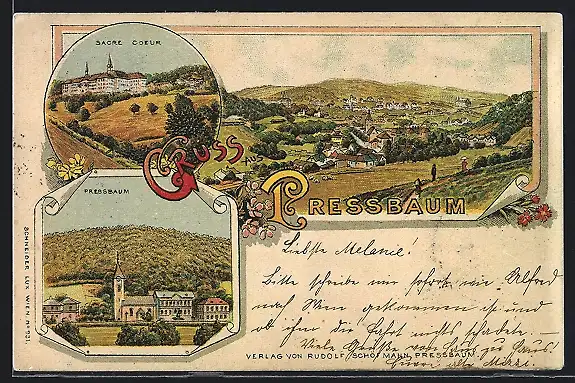 SACRE COEUR
GRUSS AUS
PRESSBAUM
PRESSBAUM
SCHNEIDER LUX, WIEN
Liebste Melanie!
Bitte schreibe mir sofort wie Alfred
nach Wien gekommen ist und
ob ihm die Fahrt nichts schadete. –
Viele Grüße von Haus zu Haus.
VERLAG VON RUDOLF SCHÖFMANN, PRESSBAUM
Mizzi.